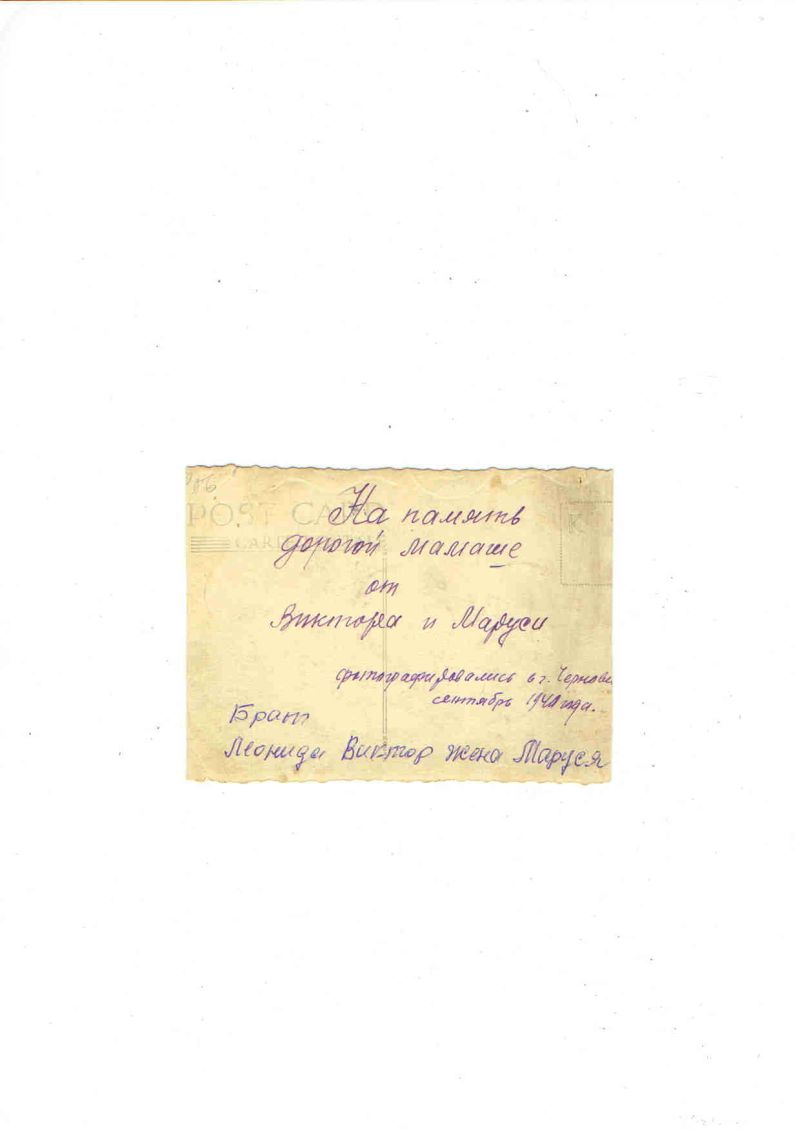 На память
POST CARD
дорогой мамаше
от
Виктора и Маруси
фотографировались в г. Чернов
сентябрь года.
Брат
Леонида Виктор жена Маруся